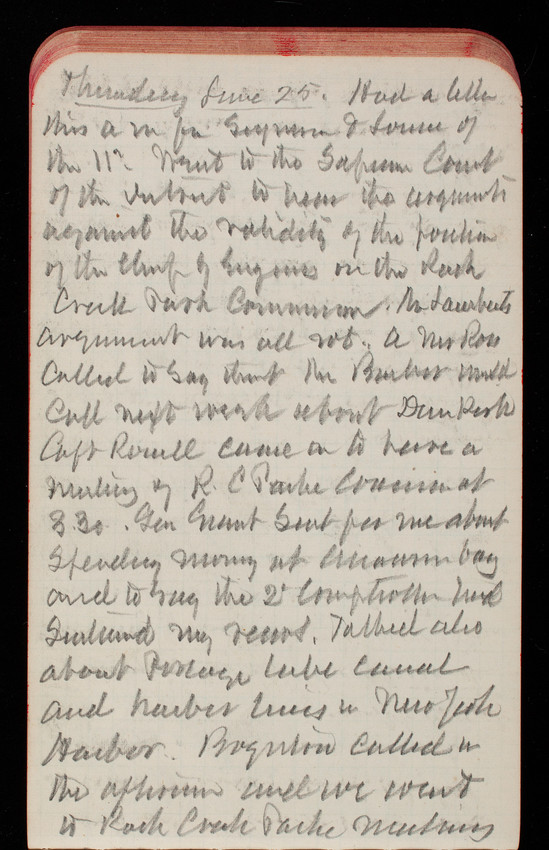 Thursday June 25. Had a letter
this a m fm Seymour & Louise of
the 11th. Went to the Supreme Court
of the District to hear the arguments
against the validity of the position
of the Chief of Engineers on the Rock
Creek Park Commission. Mr Lamberts
argument was all rot. A Mr Ross
Called to say that Mr Barber would
Call next week about Dun
Capt Rossell came on to have a
Meeting of R. C Parke Commission at
3 30. Gen Grant Sent for me about
Spending money at bay
and to say the 2d Comptroller had
Sustained my views. Talked also
about Portage lake canal
and harbor lines in New York
Harbor. Boynton called in
the afternoon and we went
to Rock Creek Parke Meeting